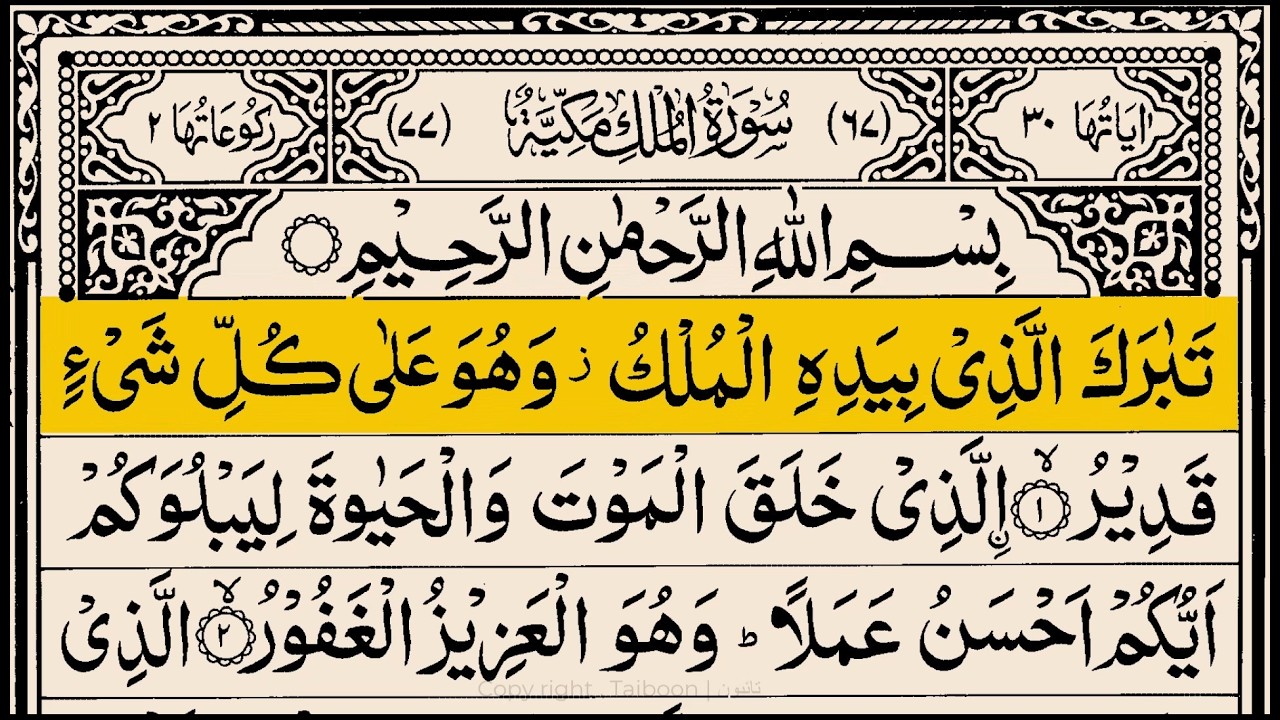 اٰيَاتُهَا ٣٠ (٦٧) سُوْرَةُ الْمُلْكِ مَكِّيَّةٌ (٧٧) رُكُوْعَاتُهَا ٢
بِسْمِ اللّٰهِ الرَّحْمٰنِ الرَّحِيْمِ
تَبٰرَكَ الَّذِىْ بِيَدِهِ الْمُلْكُ ز وَهُوَ عَلٰى كُلِّ شَىْءٍ
قَدِيْرُ ۙ ١ اِ۟لَّذِىْ خَلَقَ الْمَوْتَ وَالْحَيٰوةَ لِيَبْلُوَكُمْ
اَيُّكُمْ اَحْسَنُ عَمَلًا ؕ وَهُوَ الْعَزِيْزُ الْغَفُوْرُ ۙ ٢ الَّذِىْ
Copy right . Taiboon | تائبون